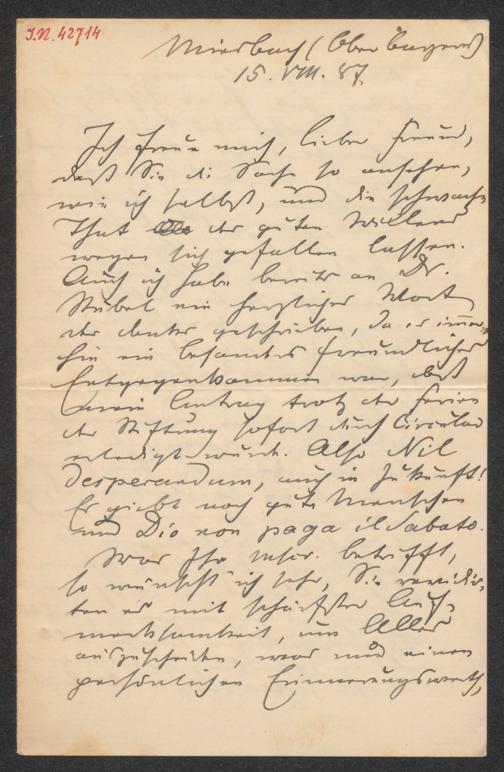 I.N. 42714
Miesbach (Oberbayern)
15. VIII. 87.
Ich freue mich, lieber Freund,
daß Sie die Sache so ansehen,
wie ich selbst, und die schwache
That des guten Willens
wegen sich gefallen lassen.
Auch ich habe bereits an Dr.
Stübel ein herzliches Wort
des Dankes geschrieben, da es immer-
hin ein besonders freundliches
Entgegenkommen war, daß
mein Antrag trotz der Ferien
der Stiftung sofort durch Circular
erledigt wurde. Also Nil
desperandum, auch in Zukunft!
Es giebt noch gute Menschen
und Dio non paga il Sabato.
Was Ihr Mscr. betrifft,
so wünscht ich sehr, Sie revidir-
ten es mit schärfster Auf-
merksamkeit, um Alles
auszuscheiden, was nur einen
persönlichen Erinnerungswerth,